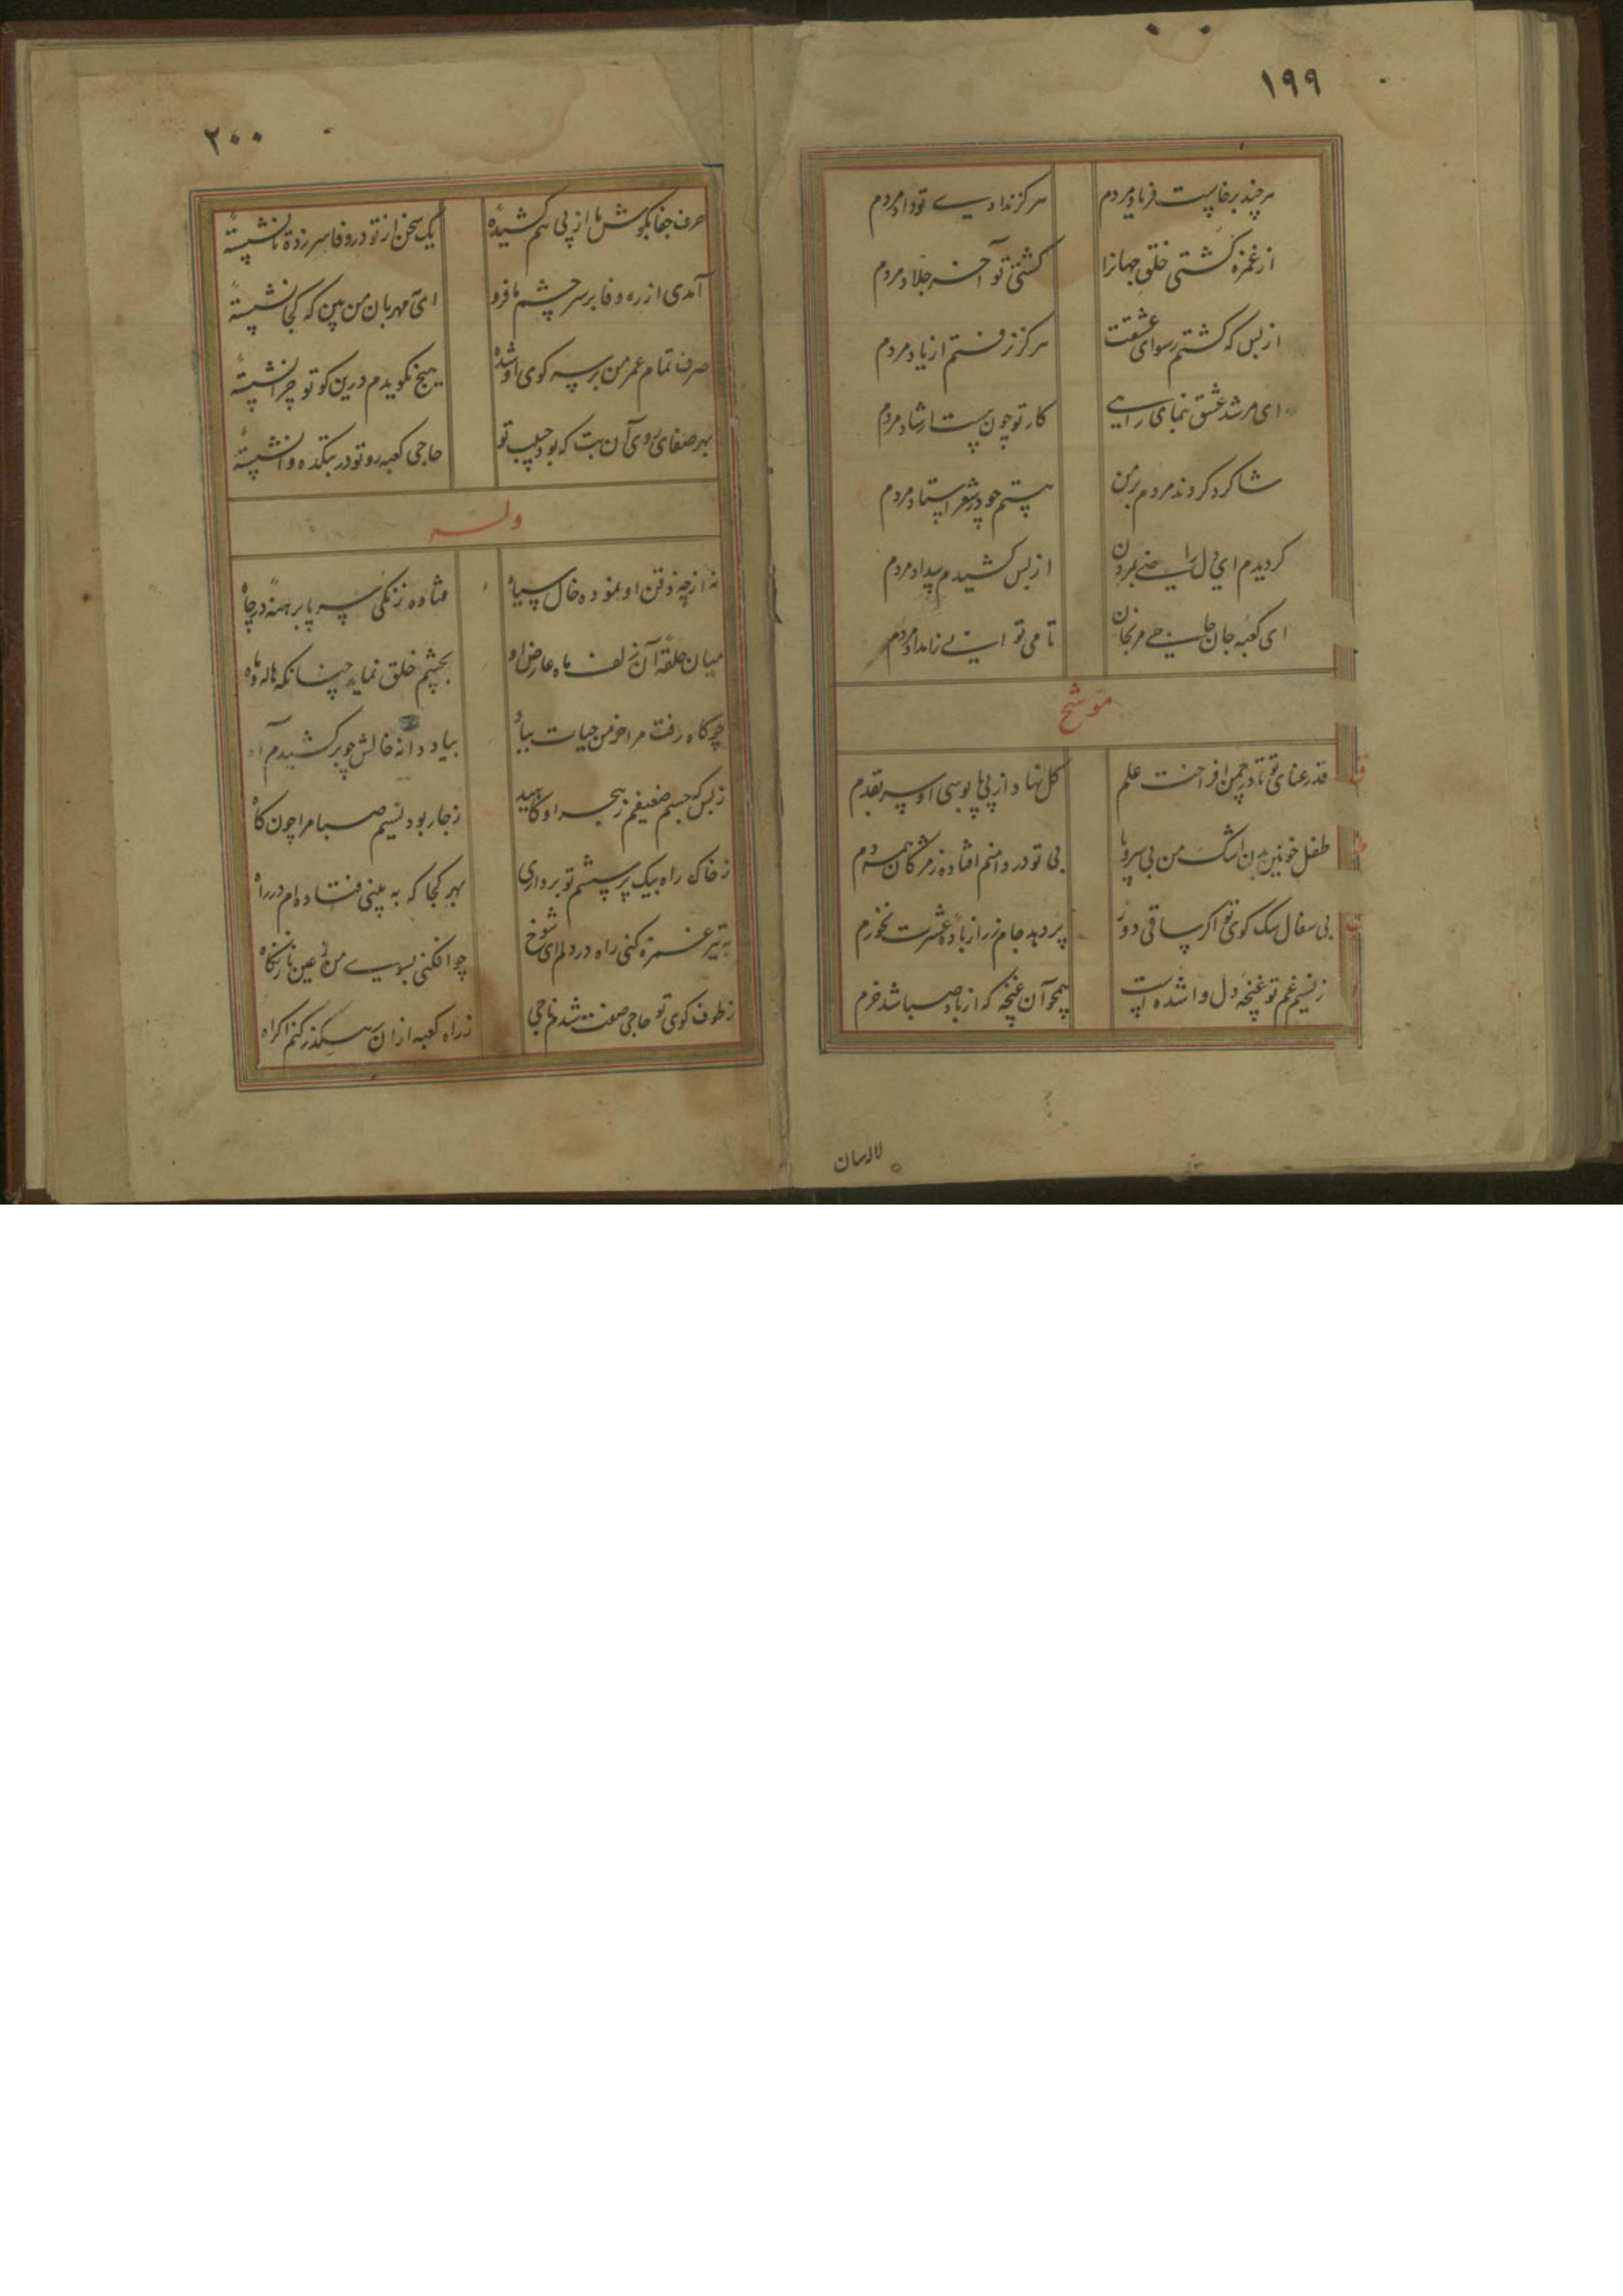 ۱۹۹
هر چند برخاست فریاد مردم هرگز ندادی تو داد مردم
از غمزه کشتی خلق جهانرا کشتی تو آخر جلاد مردم
از بس که کشتم رسوای عشقت هرگز نرفتم از یاد مردم
ای مرشد عشق بنمای راهی کار تو چون هست ارشاد مردم
شاکرد کردند مردم بر من هستم چو در شعر استاد مردم
کردیدم ای دل راضی بمردن از بس کشیدم بیداد مردم
ای کعبه جان حاجی مرنجان تا می تو
موشح
قد رعنای تو تا در چمن افراخت علم کل نهاد از پی پابوسی او سر بقدم
طفل خونین بدن اشک من بی سر و پا بی تو در دامنم افتاده ز مژکان همه دم
بی سفال سک کوی تو اکر ساقی دور پر دهد جام زر از باده عشرت نخورم
ز نسیم غم تو غنچه دل وا شده است همچو آن غنچه که از باد صبا شد خرم
لاله سان
۲۰۰
حرف جفا بکوش ما از پی هم کشیده یک سخن از تو در وفا سر زده تا نشسته
آمدی از ره وفا بر سر چشم ما فرو ای مه مهربان من بین که کجا نشسته
صرف تمام عمر من بر سر کوی او شده هیچ نکویدم درین کو تو چرا نشسته
بهر صفای روی آن بت که بود حبیب تو حاجی کعبه رو تو در بتکده وانشسته
وله
نه از چه ذقن او نموده خال سیاه فتاده زنکی سر پا برهنه در چاه
میان حلقه آن زلف ماه عارض او بچشم خلق نماید چنانکه هاله و ماه
چو کاه رفت مرا خرمن حیات بباد بیاد دانه خالش چو بر کشیدم آه
ز بس که جسم ضعیفم ز هجر او کاهید ز جا ربود نسیم صبا مرا چون کاه
ز خاک راه بیک پرسشم تو برداری بهر کجا که به بینی فتاده ام در راه
به تیر غمزه کنی راه در دلم ای شوخ چو افکنی بسوی من ز عین ناز نکاه
ز طوف کوی تو حاجی صفت شدم ناجی ز راه کعبه از آن سر کذر کنم اکراه